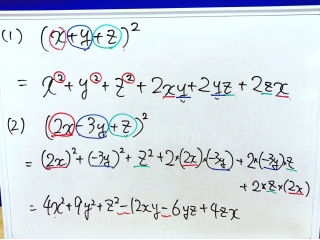 (1) (x+y+z)²
= x²+y²+z²+2xy+2yz+2zx
(2) (2x-3y+z)²
= (2x)²+(-3y)²+z²+2×(2x)×(-3y)+2×(-3y)×z
+2×z×(2x)
= 4x²+9y²+z²-12xy-6yz+4zx